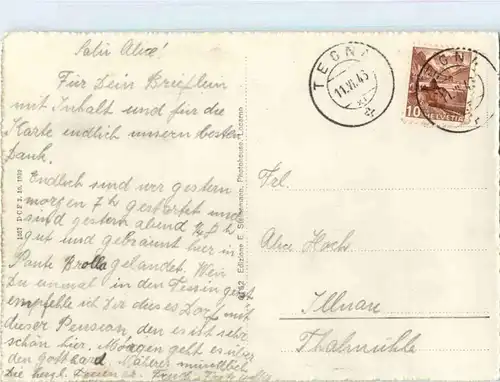 Salü Alice!
Für Dein Brieflein
mit Inhalt und für die
Karte endlich unsern besten
Dank.
Endlich sind wir gestern
morgen 7 h gestartet und
sind gestern abend
gut und gebräunt hier in
Ponte Brolla gelandet. Wenn
Du einmal in den Tessin gehst
empfehle ich Dir dieses Dorf mit
dieser Pension, den es ist sehr
schön hier. Morgen geht es über
den Gotthard. Näheres mündlich
Die herzl.
6762 Edizione E. Steinemann, Photohaus, Locarno
TEGNA
11.VI.45
XI
10
HELVETIA
TEGNA
Frl.
Alice Hoch
Illnau
Thalmühle